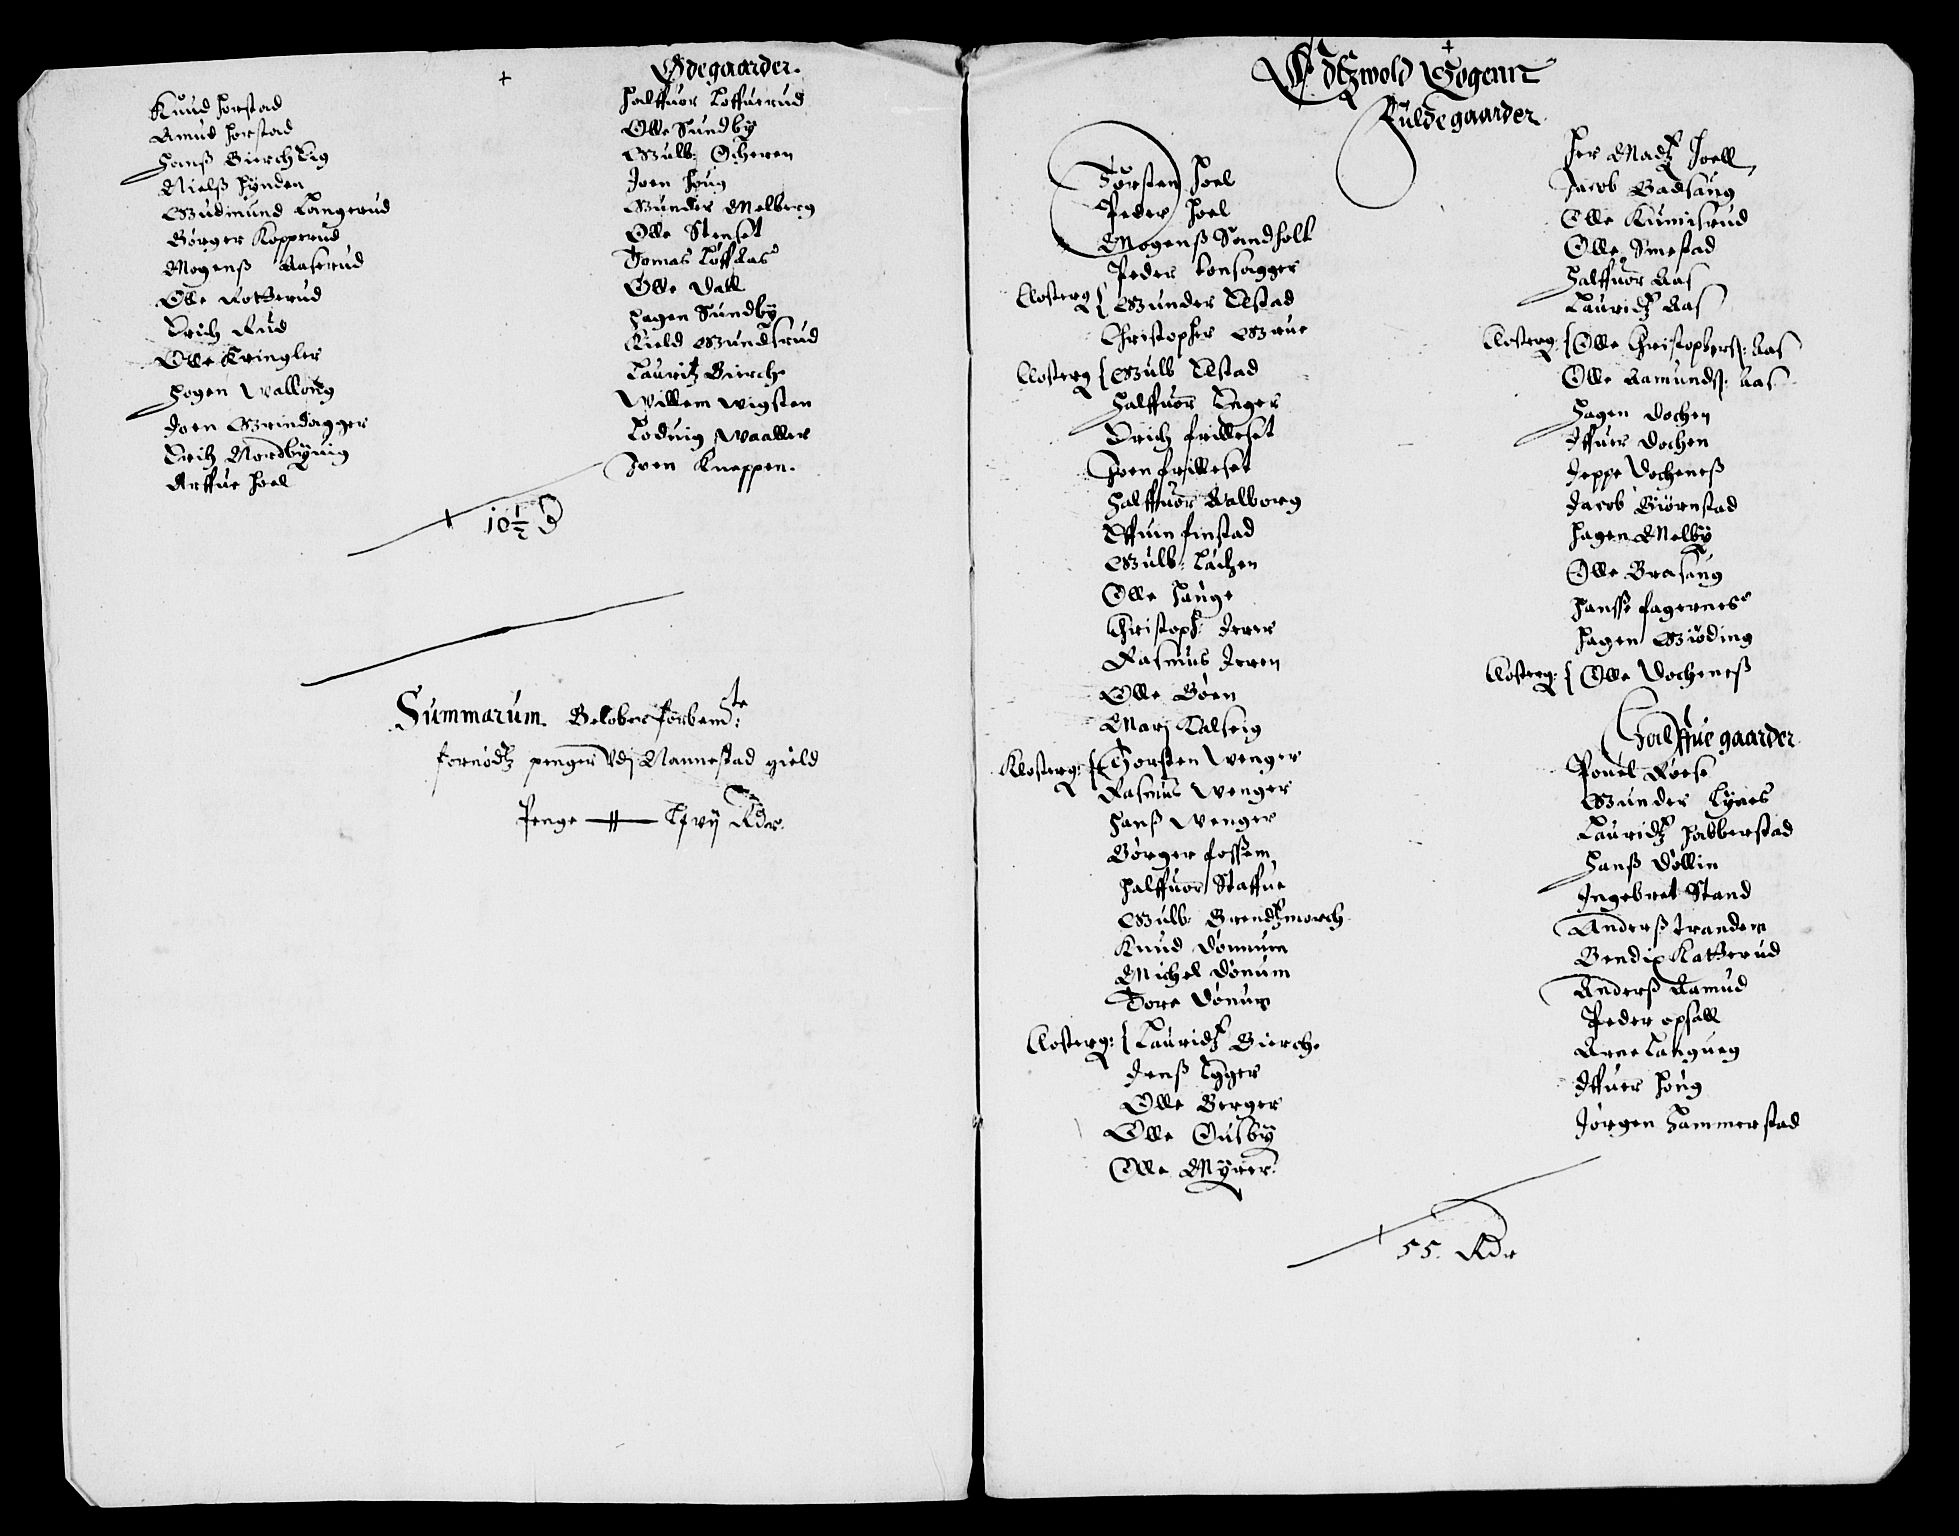 Knud Horstad
Amud Horstad
Hanß Bierch Lig
Nielß Hynden
Gudmund Langerud
Børger Kopperud
Mogenß Aaserud
Olle Rotterud
Erich Rud
Olle Kringler
Hogen
Joen Grindagger
Erich Nordbyuig
Arffue Hoel
10½ D
Ødegaarder.
Halffuor Loffuerud
Olle Sundby
Gulb: Ocheren
Joen Houg
Gunder Melberg
Olle Stenset
Tomas Løffaas
Olle Dall
Hagen Sundby
Kield Gundersrud
Lauritz Bierche
Willem Wigsten
Loduig Waaller
Joen Kneppen.
Summarum. Beløber forbemte:
fornødtz penger Vdj Nannestad gield
Penge Lxvij Rdr.
Edtzwold Sogenn
Fuldegaarder
Torsten Hoel
Peder Hoel
Mogenß Sandholt
Peder Lonsagger
Closterg { Gunder Elstad
Christopher Grue
Closterg { Gulb Elstad
Halffuor Enger
Erich frilleset
Joen frilleset
Halffuor Aalborg
Effuin finstad
Gulb: Lachen
Olle Hauge
Christoph: Jerer
Rasmus Jeren
Olle Bøen
Marj Kalseig
Klosterg: { Thorsten Wenger
Rasmus Wenger
Hanß Wenger
Børger fossem
Halffuor Staffue
Gulb: Brendtzmorch
Knud Dønnum
Michel Dønum
Tore Dønum
Closterg: { Lauridtz Bierche
Jenß Lyger
Olle Berger
Olle Ousby
Olle Myrer
Per Madtz Hoell
Jacob Badsaug
Olle Kumisrud
Olle Smestad
Halffuor Aas
Lauridtz Aas
Closterg: { Olle Christophersß: Aas
Olle Aamundsß: Aas
Hagen Dochen
Iffuer Dochen
Jeppe Docheneß
Jacob Biørnstad
Hagen Melby
Olle Brasaug
Hansse fagerness
Hagen Giøding
Closterg: { Olle Docheneß
Halffue gaarder
Pouel Røese
Gunder Lynes
Lauridtz Habberstad
Hanß Døllin
Ingebret Stand
Anderß tranden
Bendix Katterud
Anderß Aamud
Peder opsall
Arne Langueg
Iffuer Houg
Jørgen Hammerstad
55. Rdr